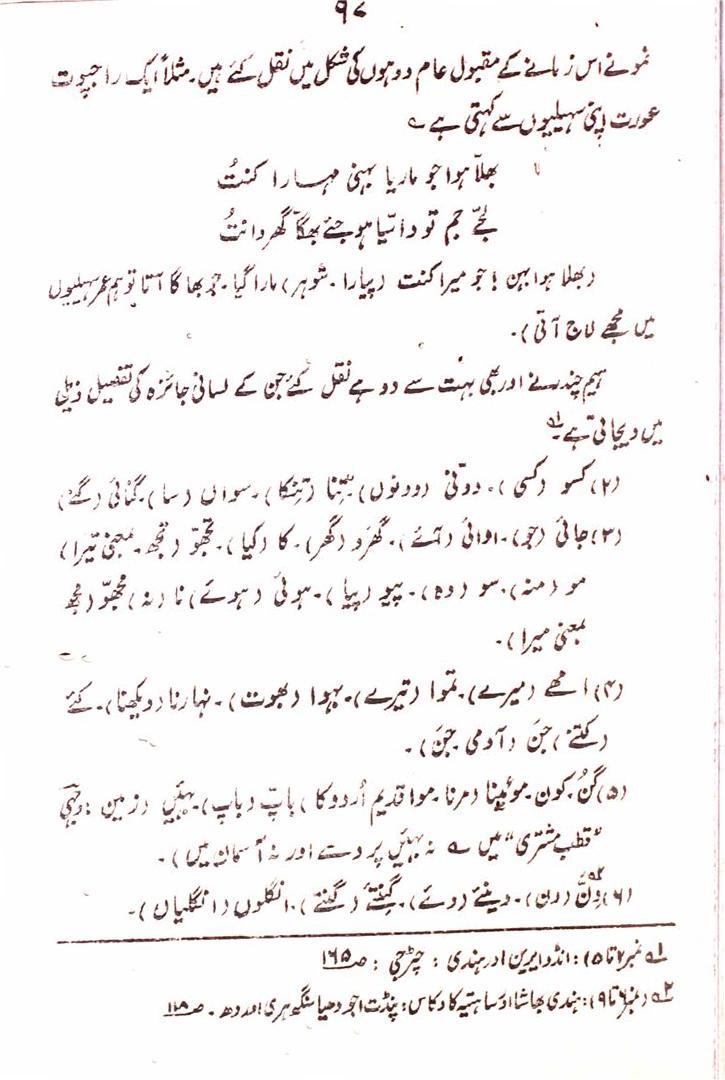 ۹۷
نمونے اس زمانے کے مقبول عام دوہوں کی شکل میں نقل کئے ہیں۔ مثلاً ایک راجپوت
عورت اپنی سہیلیوں سے کہتی ہے ؎
بھلّا ہوا جو ماریا بہنی مہارا کنتُ
لجّے جم تو دانسیا ہو جئے بھگّا گھر دانتُ
(بھلا ہوا بہن! جو میرا کنت (پیارا۔ شوہر) مارا گیا۔ جو بھاگا آتا تو ہم عمر سہیلیوں
میں مجھے لاج آتی)۔
ہیم چندر نے اور بھی بہت سے دوہے نقل کئے جن کے لسانی جائزہ کی تفصیل ذیل
میں دیجاتی ہے۔؎۱
(۲) کسو (کسی)۔ دونّی (دونوں)۔ تِنا (تنکا)۔ سواں (سا)۔ گنائی (گئے)
(۳) جائی (جو)۔ اوائی (آئے)۔ گھرَد (گھر)۔ کا (کیا)۔ تجھوّ (تجھ۔ بمعنی تیرا)
مو (منہ)۔ سو (وہ)۔ پیو (پیا)۔ ہوئی (ہوئے) نا (نہ) مجھوّ (مجھ
بمعنی میرا)۔
(۴) امھے (میرے)۔ تموا (تیرے)۔ بہوا (بھوت)۔ نہارنا (دیکھنا)۔ کئے
(کتنے) جنَ (آدمی جَن)۔
(۵) گنُ۔ کون۔ موئینا (مرنا۔ موا قدیم اُردو کا) باپّ (باپ)۔ بھئیں (زمین: وجہی
"قطب مشتری" میں ؎ نہ بھئیں پر دسے اور نہ آسمان میں)۔
(۶) دِنّ؎۲ (دن)۔ دینئے (دوئے)۔ گنتئے (گنتے)۔ انگلوں (انگلیاں)۔
؎۱ نمبر ۲ تا ۵): انڈو ایرین اور ہندی: چٹرجی: ص ۱۶۵
؎۲ (نمبر ۶ تا ۹): ہندی بھاشا اور ساہتیہ کا وکاس: پنڈت اجودھیا سنگھ ہری اودھ۔ ص ۱۱۸